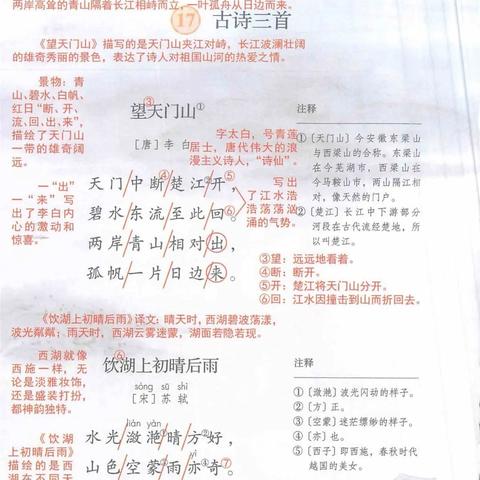 两岸高耸的青山隔着长江相峙而立,一叶孤舟从日边而来。
17 古诗三首
《望天门山》描写的是天门山夹江对峙,长江波澜壮阔
的雄奇秀丽的景色,表达了诗人对祖国山河的热爱之情。
景物:青
山、碧水、白帆、
红日“断、开、
流、回、出、来”,
描绘了天门山
一带的雄奇阔
远。
一“出”
一“来”写
出了李白内
心的激动和
惊喜。
③
望天门山①
[唐] 李 白
字太白,号青莲
居士,唐代伟大的浪
漫主义诗人,“诗仙”。
天门中断④楚江②开⑤,
碧水东流至此回⑥。
两岸青山相对出,
孤帆一片日边来。
写出
了江水浩
浩荡荡汹
涌的气势。
注释
①〔天门山〕今安徽东梁山
与西梁山的合称。东梁山
在今芜湖市,西梁山在
今马鞍山市,两山隔江相
对,像天然的门户。
②〔楚江〕长江中下游部分
河段在古代流经楚地,所
以叫楚江。
③望:远远地看着。
④断:断开。
⑤开:楚江将天门山分开。
⑥回:江水因撞击到山而折回去。
《饮湖上初晴后雨》译文:晴天时,西湖碧波荡漾,
波光粼粼;雨天时,西湖云雾迷蒙,湖面若隐若现。
西湖就像
西施一样,无
论是淡雅妆饰,
还是盛装打扮,
都神韵独特。
⑥
饮湖上初晴后雨
sòng sū shì
[宋] 苏 轼
liàn yàn
水光潋滟①晴方②好,
yì
山色空蒙③雨亦④奇⑦。
注释
①〔潋滟〕波光闪动的样子。
②〔方〕正。
③〔空蒙〕迷茫缥缈的样子。
④〔亦〕也。
⑤〔西子〕即西施,春秋时代
越国的美女。
《饮湖
上初晴后雨》
描绘的是西
湖在不同天